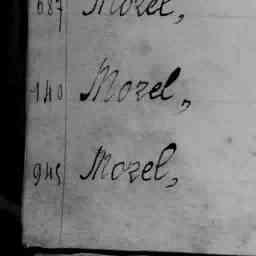 687 Mozel,
140 Mozel,
945 Mozel,